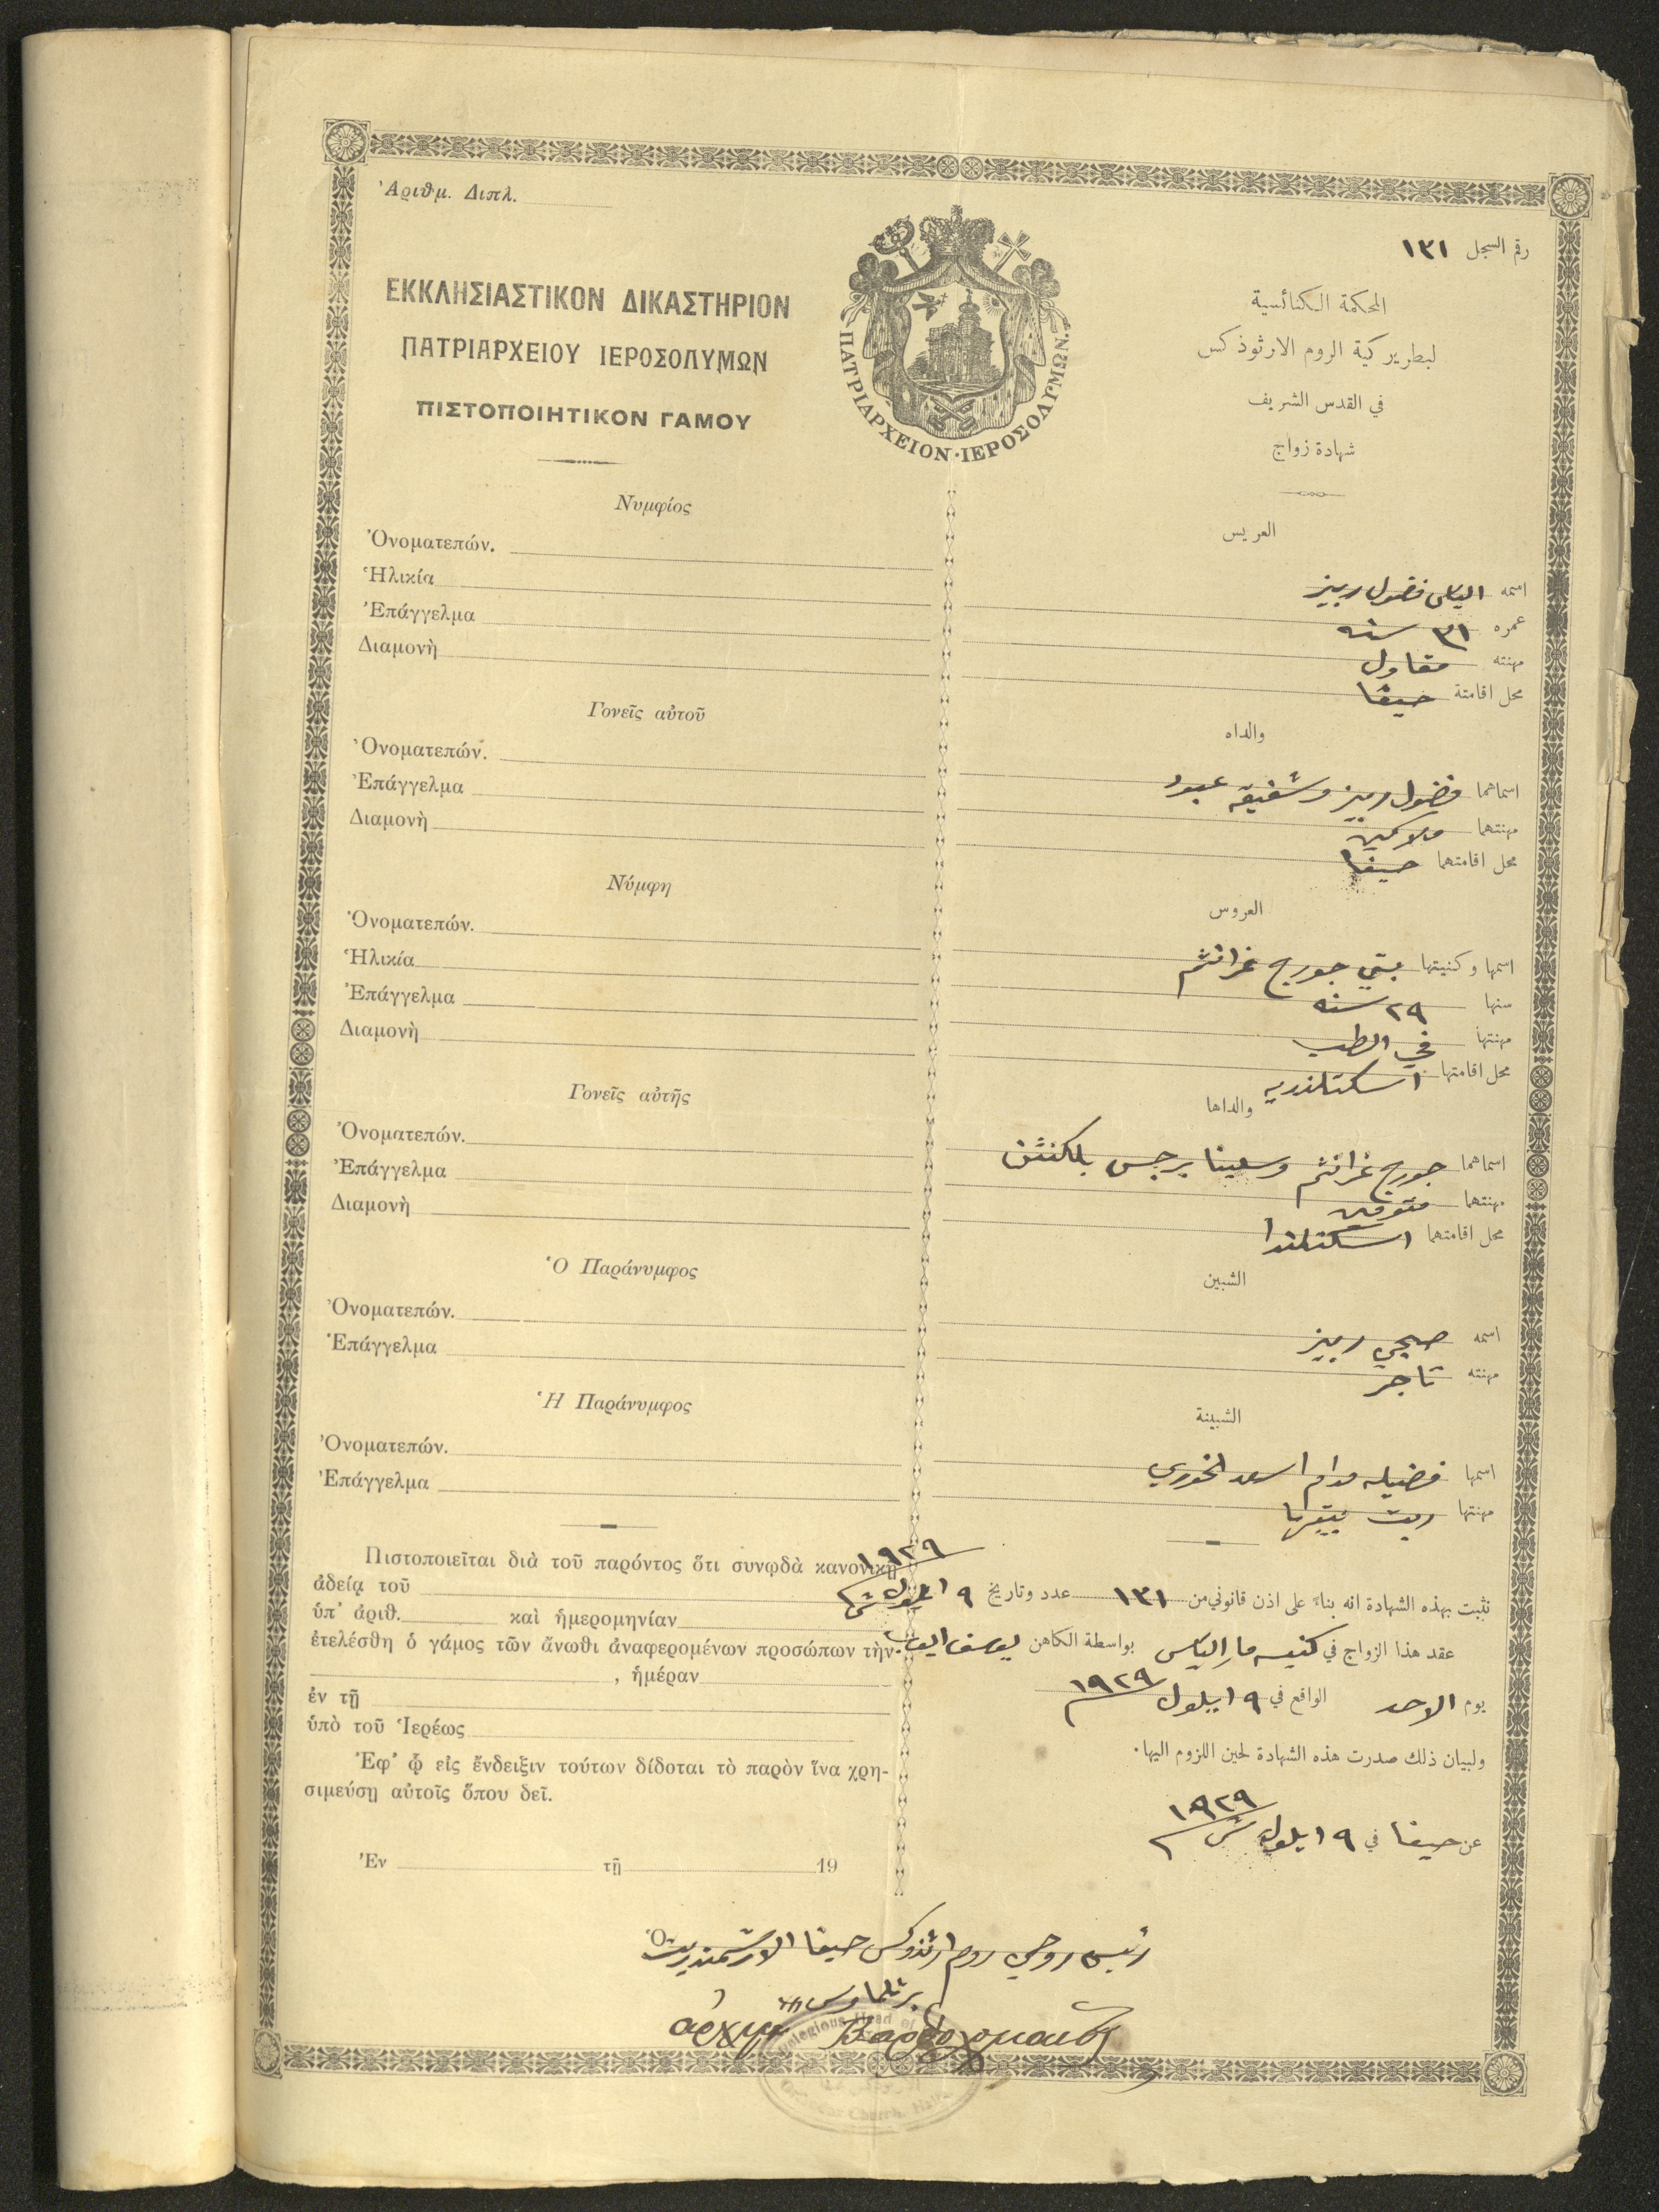 Ἀριθμ. Διπλ.
رقم السجل ١٣١
ΕΚΚΛΗΣΙΑΣΤΙΚΟΝ ΔΙΚΑΣΤΗΡΙΟΝ
ΠΑΤΡΙΑΡΧΕΙΟΥ ΙΕΡΟΣΟΛΥΜΩΝ
ΠΙΣΤΟΠΟΙΗΤΙΚΟΝ ΓΑΜΟΥ
ΠΑΤΡΙΑΡΧΕΙΟΝ·ΙΕΡΟΣΟΛΥΜΩΝ.
المحكمة الكنائسية
لبطريركية الروم الارثوذكس
في القدس الشريف
شهادة زواج
Νυμφίος
Ὀνοματεπών.
Ἡλικία
Ἐπάγγελμα
Διαμονὴ
Γονεῖς αὐτοῦ
Ὀνοματεπών.
Ἐπάγγελμα
Διαμονὴ
Νύμφη
Ὀνοματεπών.
Ἡλικία
Ἐπάγγελμα
Διαμονὴ
Γονεῖς αὐτῆς
Ὀνοματεπών.
Ἐπάγγελμα
Διαμονὴ
Ὁ Παράνυμφος
Ὀνοματεπών.
Ἐπάγγελμα
Ἡ Παράνυμφος
Ὀνοματεπών.
Ἐπάγγελμα
Πιστοποιεῖται διὰ τοῦ παρόντος ὅτι συνῳδὰ κανονικῇ
ἀδείᾳ τοῦ
ὑπ' ἀριθ. καὶ ἡμερομηνίαν
ἐτελέσθη ὁ γάμος τῶν ἄνωθι ἀναφερομένων προσώπων τὴν
, ἡμέραν
ἐν τῇ
ὑπὸ τοῦ Ἱερέως
Ἐφ' ᾧ εἰς ἔνδειξιν τούτων δίδοται τὸ παρὸν ἵνα χρη-
σιμεύσῃ αὐτοῖς ὅπου δεῖ.
Ἐν τῇ 19
العريس
اسمه الياس فضول ربيز
عمره ٣١ سنه
مهنته مقاول
محل اقامتة حيفا
والداه
اسماهما فضول ربيز وشفيقه عبود
مهنتهما ملاكين
محل اقامتهما حيفا
العروس
اسمها وكنيتها بتي جورج غرانتم
سنها ٢٩ سنه
مهنتها في الطب
محل اقامتها اسكتلنديه
والداها
اسماهما جورج غرانتم وسلينا برجس
مهنتهما متوفين
محل اقامتهما اسكتلندا
الشبين
اسمه صبحي ربيز
مهنته تاجر
الشبينة
اسمها فضيله مدام اسعد الخوري
مهنتها ربت بيتها
نثبت بهذه الشهادة انه بناءً على اذن قانوني من ١٣١ عدد وتاريخ ٩ ايلول ١٩٢٩
عقد هذا الزواج في كنيسه مار الياس بواسطة الكاهن يوسف
يوم الاحد الواقع في ٩ ايلول ١٩٢٩
ولبيان ذلك صدرت هذه الشهادة لحين اللزوم اليها.
عن حيفا في ٩ ايلول ش ١٩٢٩
Ὁ
رئيس روحي روم ارثذوكس حيفا الارشمندريت
برثلماوس
ἀρχιμ Βαρθολομαῖος
Religious Head of
Orthodox Church, Haifa